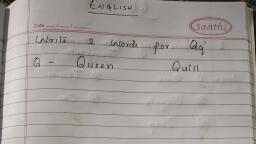 ENGLISH
DATE
Saathi
Write 2 words for 'Qq'
Q - Queen Quill